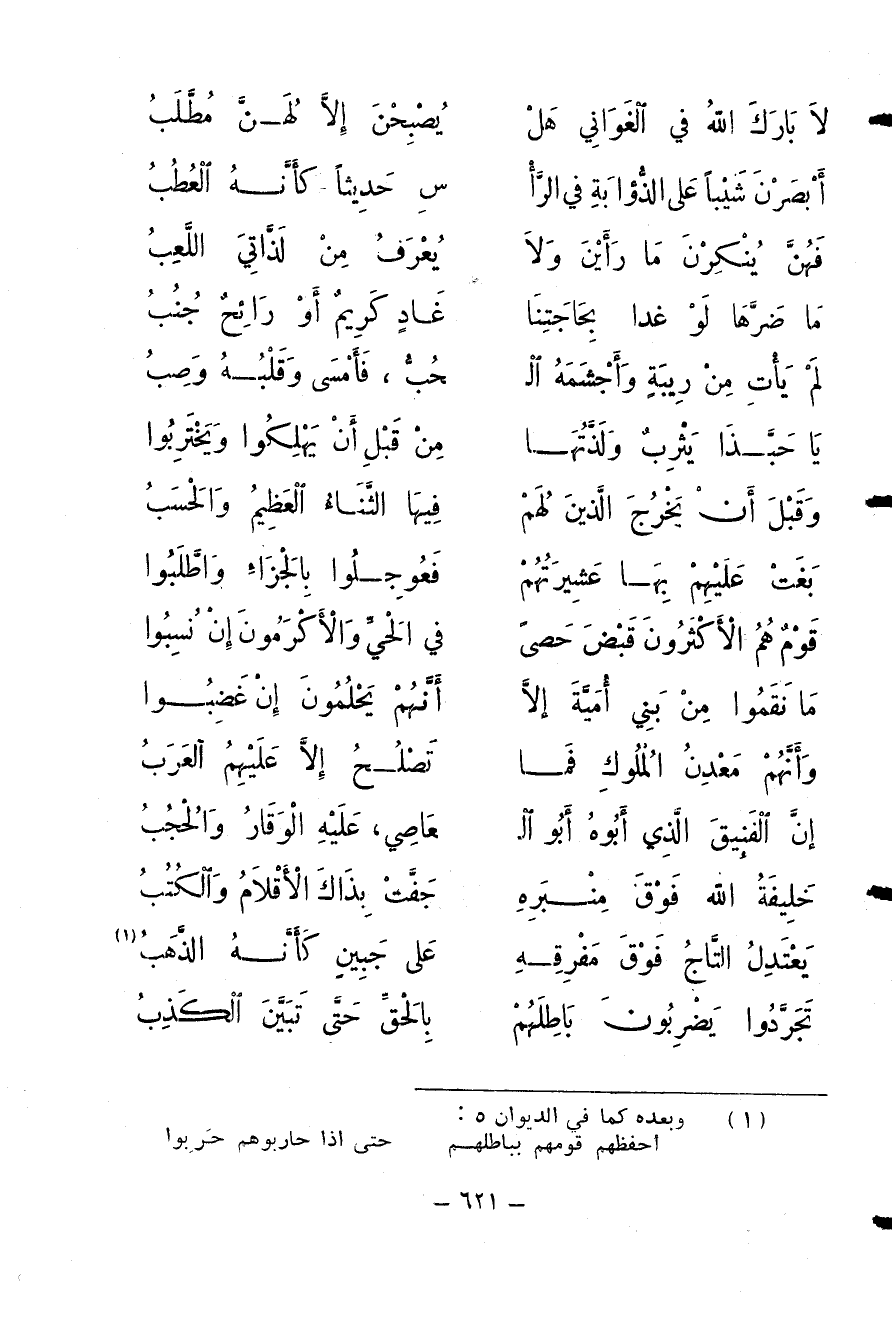 لاَ بَارَكَ اللهُ في ٱلْغَوَانِي هَلْ يُصْبِحْنَ إِلاَّ لَهُـنَّ مُطَّلَبُ
أَبْصَرْنَ شَيْباً عَلَى الذُّؤَابَةِ في الرَّأْ سِ حَدِيثاً كَأَنَّـهُ ٱلْعُطُبُ
فَهُنَّ يُنْكِرْنَ مَا رَأَيْنَ وَلاَ يُعْرَفُ مِنْ لَذَّاتِيَ اللَّعِبُ
مَا ضَرَّهَا لَوْ غدا بِحَاجَتِنَا غَـادٍ كَرِيمٌ أَوْ رَائِحٌ جُنُبُ
لَمْ يَأْتِ مِنْ رِيبَةٍ وَأَجْشَمَهُ ٱلـ حُبُّ ، فَأَمْسَى وَقَلْبُـهُ وَصِبُ
يَا حَبَّـذَا يَثْرِبٌ وَلَذَّتُهَـا مِنْ قَبْلِ أَنْ يَهْلِكُوا وَيَحْتَرِبُوا
وَقَبْلَ أَنْ يَخْرُجَ الَّذِينَ لَهُمْ فِيهَا الثَّنَـاءُ ٱلْعَظِيمُ وَالْحَسَبُ
بَغَتْ عَلَيْهِمْ بِهَـا عَشِيرَتُهُمْ فَعُوجِـلُوا بِالْجَزَاءِ وَاطَّلَبُوا
قَوْمٌ هُمُ الْأَكْثَرُونَ قَبْضَ حَصىً في الْحَيِّ وَالْأَكْرَمُونَ إِنْ نُسِبُوا
مَا نَقَمُوا مِنْ بَنِي أُمَيَّةَ إِلاَّ أَنَّهُمْ يَحْلُمُونَ إِنْ غَضِبُـوا
وَأَنَّهُمْ مَعْدِنُ الْمُلُوكِ فَمَـا تَصْلُـحُ إِلاَّ عَلَيْهِمُ ٱلْعَرَبُ
إِنَّ ٱلْفَنِيقَ الَّذِي أَبُوهُ أَبُو ٱلـ عَاصِي، عَلَيْهِ الْوَقَارُ وَالْحُجُبُ
خَلِيفَةُ الله فَوْقَ مِنْـبَرِهِ جَفَّتْ بِذَاكَ الْأَقْلَامُ وَٱلْكُتُبُ
يَعْتَدِلُ التَّاجُ فَوْقَ مَفْرِقِـهِ عَلى جَبِينٍ كَأَنَّـهُ الذَّهَبُ (١)
تَجَرَّدُوا يَضْرِبُونَ بَاطِلَهُمْ بِالْحَقِّ حَتَّى تَبَيَّنَ ٱلْكَذِبُ
(١) وبعده كما في الديوان ٥ :
احفظهم قومهم بباطلهـم حتى اذا حاربوهم حَرِبوا
– ٦٢١ –